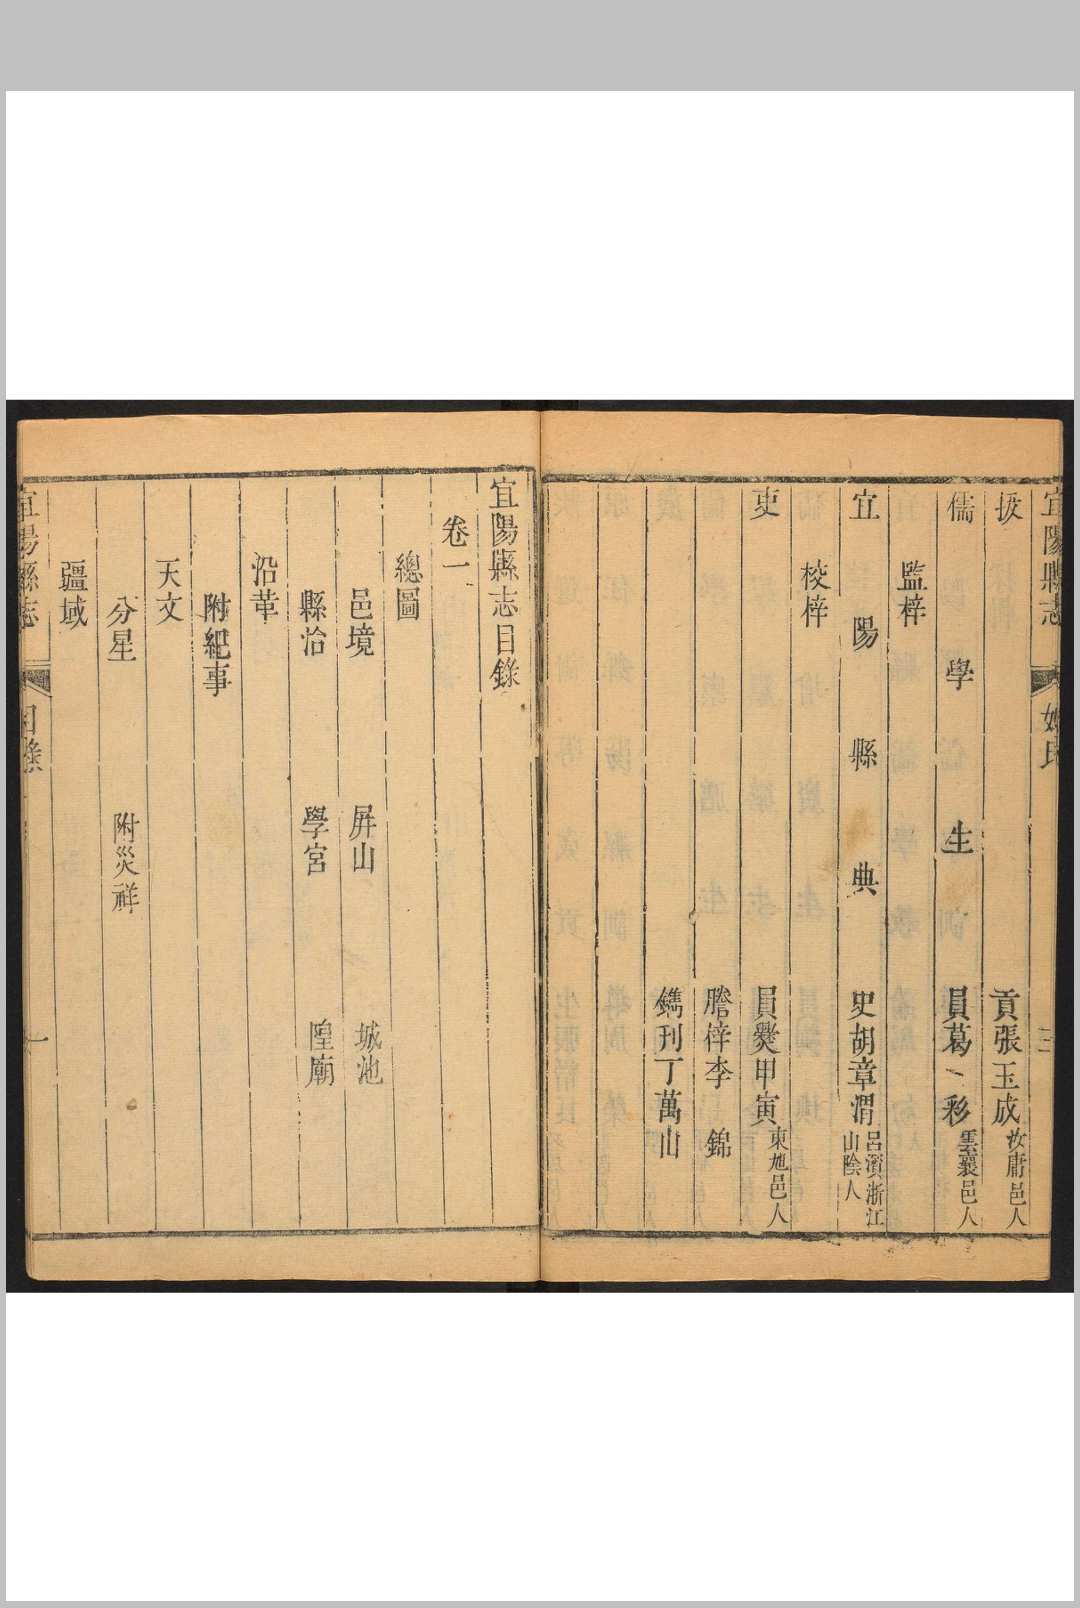 宜陽縣志 姓氏 三
拔 貢張玉成 汝庸邑人
儒學生員葛 彩 雲襄邑人
監梓
宜陽縣典史胡章渭 呂濱浙江山陰人
校梓
吏 員㸑甲寅 東旭邑人
謄梓李 錦
鐫刊丁萬山
宜陽縣志目錄
卷一
總圖
邑境 屏山 城池
縣治 學宮 隍廟
沿革
附紀事
天文
分星 附災祥
疆域
宜陽縣志 目錄 一